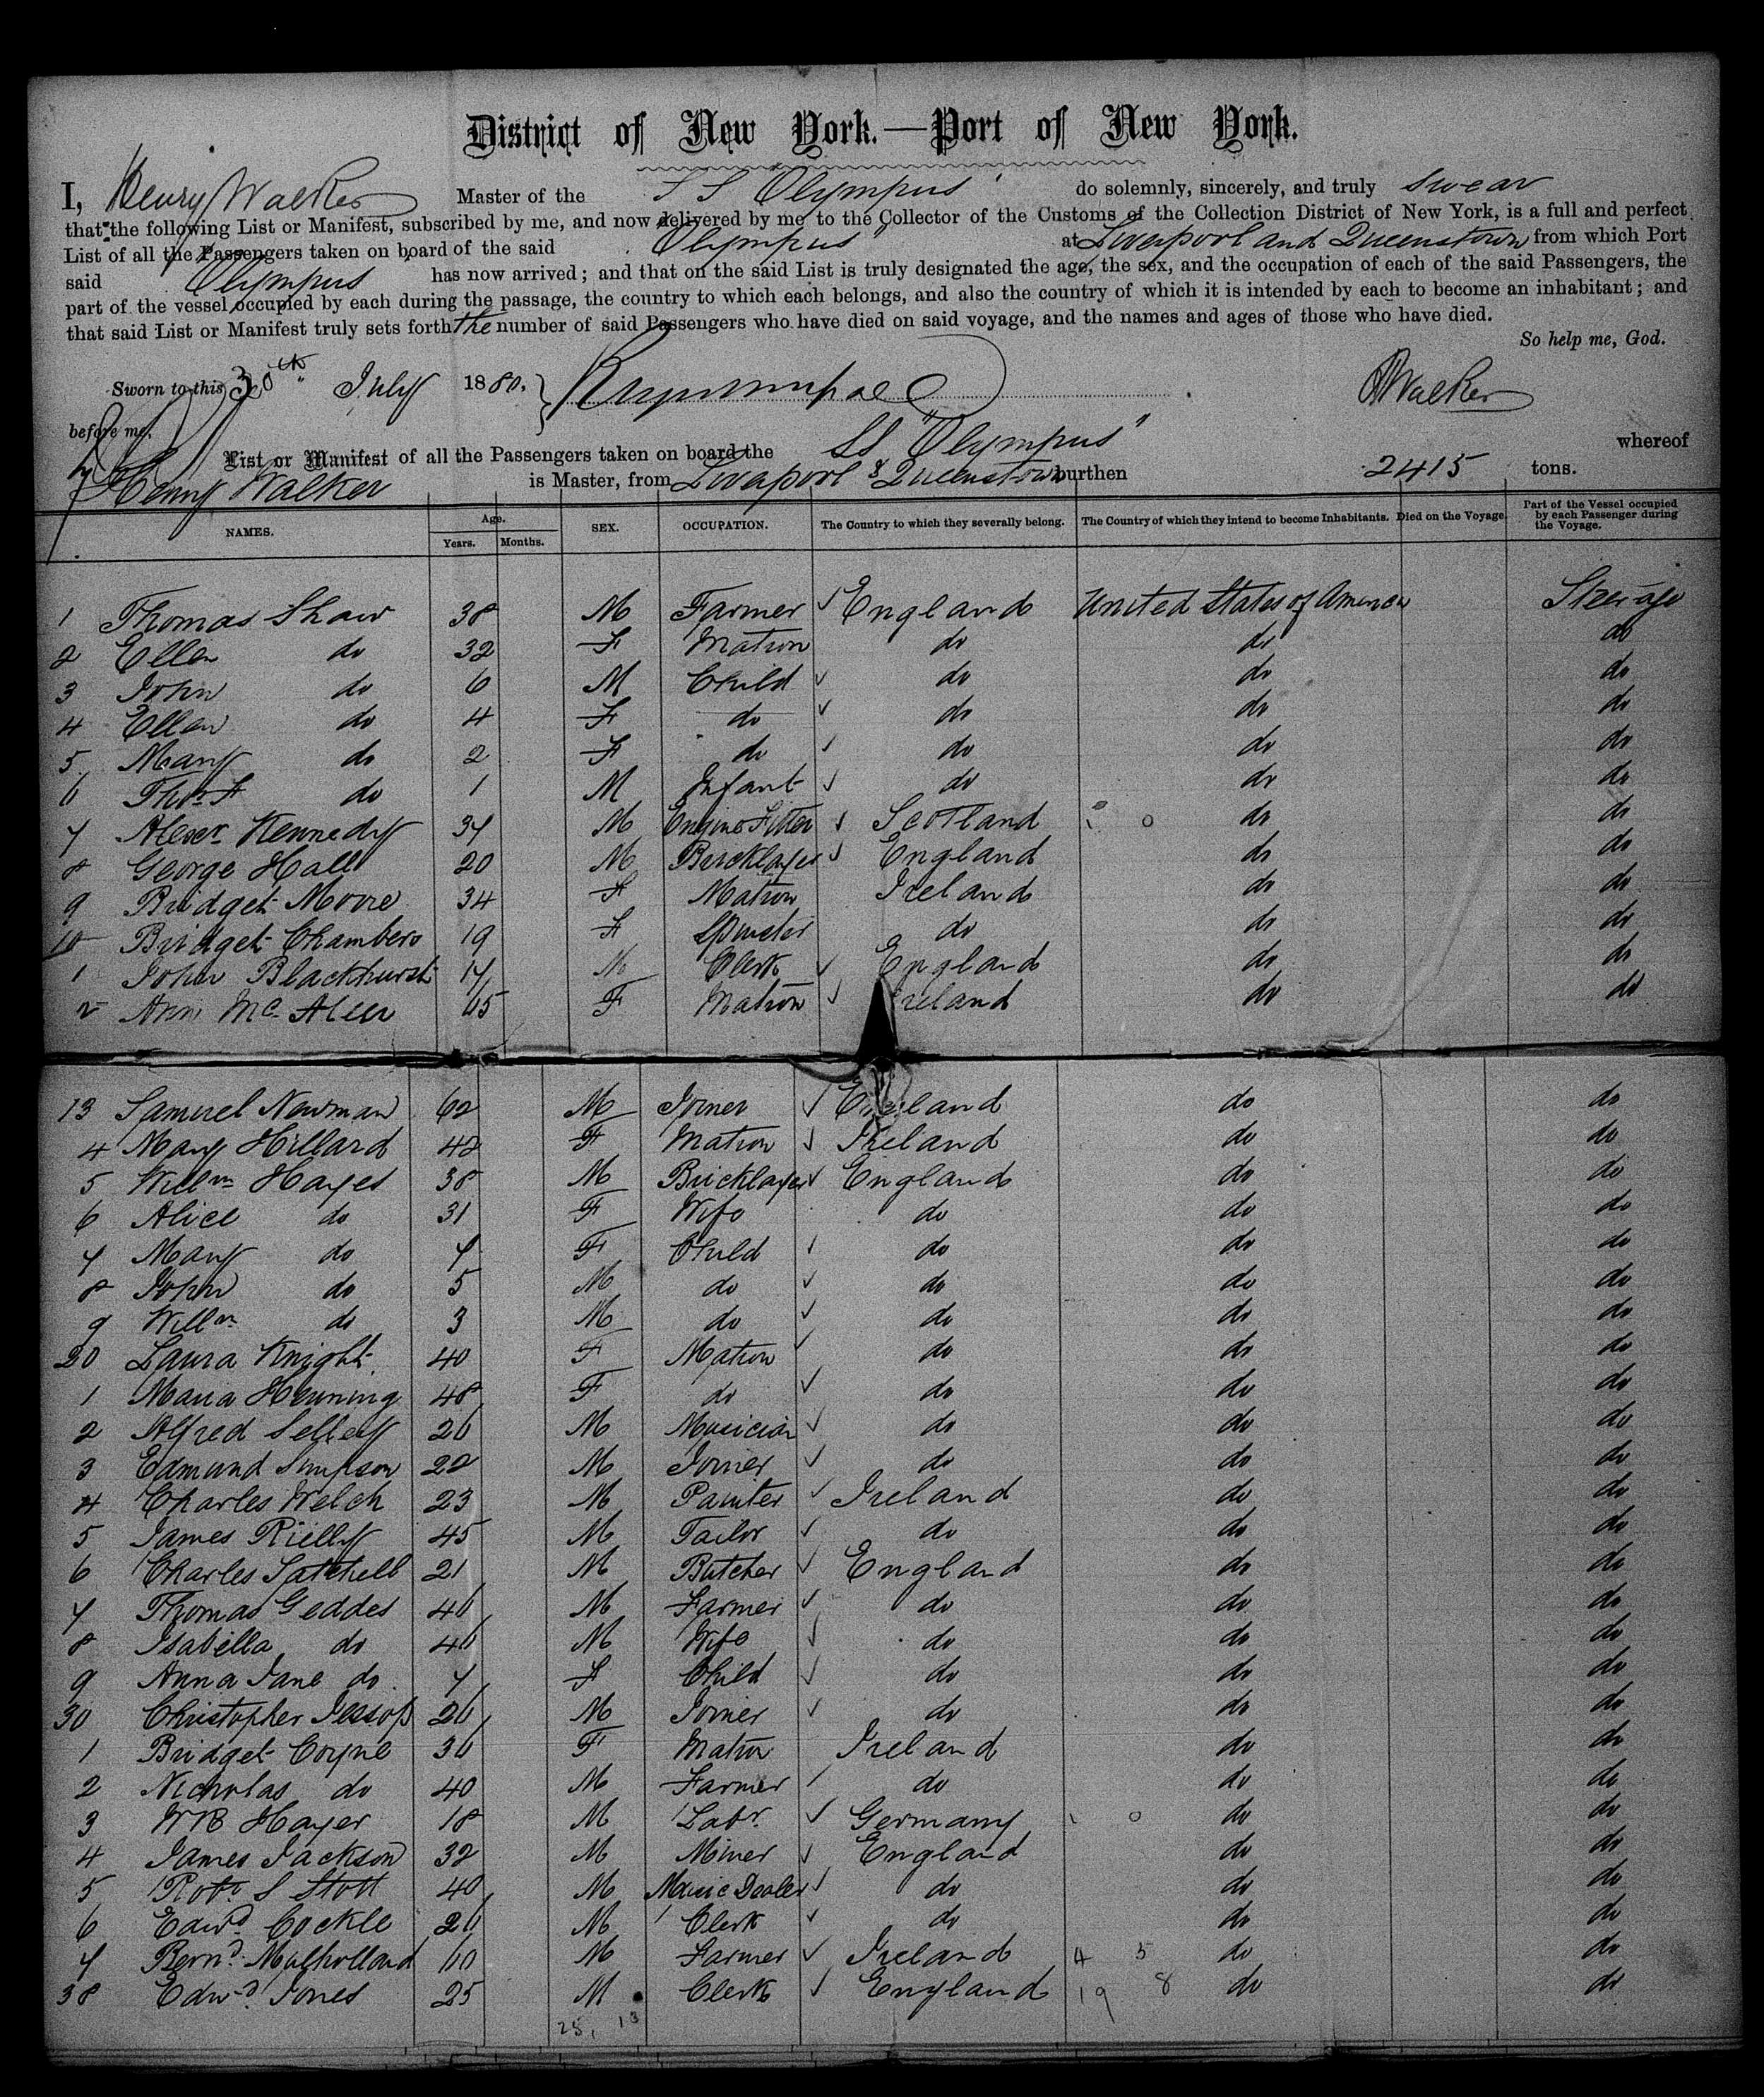 District of New York.—Port of New York.
I, Henry Walker Master of the S S "Olympus" do solemnly, sincerely, and truly swear
that the following List or Manifest, subscribed by me, and now delivered by me to the Collector of the Customs of the Collection District of New York, is a full and perfect
List of all the Passengers taken on board of the said "Olympus" at Liverpool and Queenstown from which Port
said "Olympus" has now arrived; and that on the said List is truly designated the age, the sex, and the occupation of each of the said Passengers, the
part of the vessel occupied by each during the passage, the country to which each belongs, and also the country of which it is intended by each to become an inhabitant; and
that said List or Manifest truly sets forth the number of said Passengers who have died on said voyage, and the names and ages of those who have died.
So help me, God.
Sworn to this 30th July 1880. HWalker
before me,
List or Manifest of all the Passengers taken on board the SS "Olympus" whereof
Henry Walker is Master, from Liverpool & Queenstown burthen 2415 tons.
NAMES. Age. Years. Months. SEX. OCCUPATION. The Country to which they severally belong. The Country of which they intend to become Inhabitants. Died on the Voyage. Part of the Vessel occupied by each Passenger during the Voyage.
1 Thomas Shaw 38 M Farmer England United States of America Steerage
2 Ellen do 32 F Matron do do do
3 John do 6 M Child do do do
4 Ellen do 4 F do do do do
5 Mary do 2 F do do do do
6 Thos H do 1 M Infant do do do
7 Alexr Kennedy 37 M Engine Fitter Scotland do do
8 George Hall 20 M Bricklayer England do do
9 Bridget Moore 34 F Matron Ireland do do
10 Bridget Chambers 19 F Spinster do do do
1 John Blackhurst 17 M Clerk England do do
2 Ann McAleer 65 F Matron Ireland do do
13 Samuel Newman 62 M Joiner England do do
4 Mary Hillard 42 F Matron Ireland do do
5 Willm Hayes 38 M Bricklayer England do do
6 Alice do 31 F Wife do do do
7 Mary do 7 F Child do do do
8 John do 5 M do do do do
9 Willm do 3 M do do do do
20 Laura Knight 40 F Matron do do do
1 Maria Henning 48 F do do do do
2 Alfred Selley 26 M Musician do do do
3 Edmund Simpson 22 M Joiner do do do
4 Charles Welch 23 M Painter Ireland do do
5 James Rielly 45 M Tailor do do do
6 Charles Satchell 21 M Butcher England do do
7 Thomas Geddes 46 M Farmer do do do
8 Isabella do 46 M Wife do do do
9 Anna Jane do 7 F Child do do do
30 Christopher Jessop 26 M Joiner do do do
1 Bridget Coyne 36 F Matron Ireland do do
2 Nicholas do 40 M Farmer do do do
3 WB Hayer 18 M Labr Germany do do
4 James Jackson 32 M Miner England do do
5 Robt S Stott 40 M Music Dealer do do do
6 Edwd Cockle 26 M Clerk do do do
7 Bernd Mulholland 60 M Farmer Ireland 4 5 do do
38 Edwd Jones 25 M Clerk England 19 8 do do
25, 13